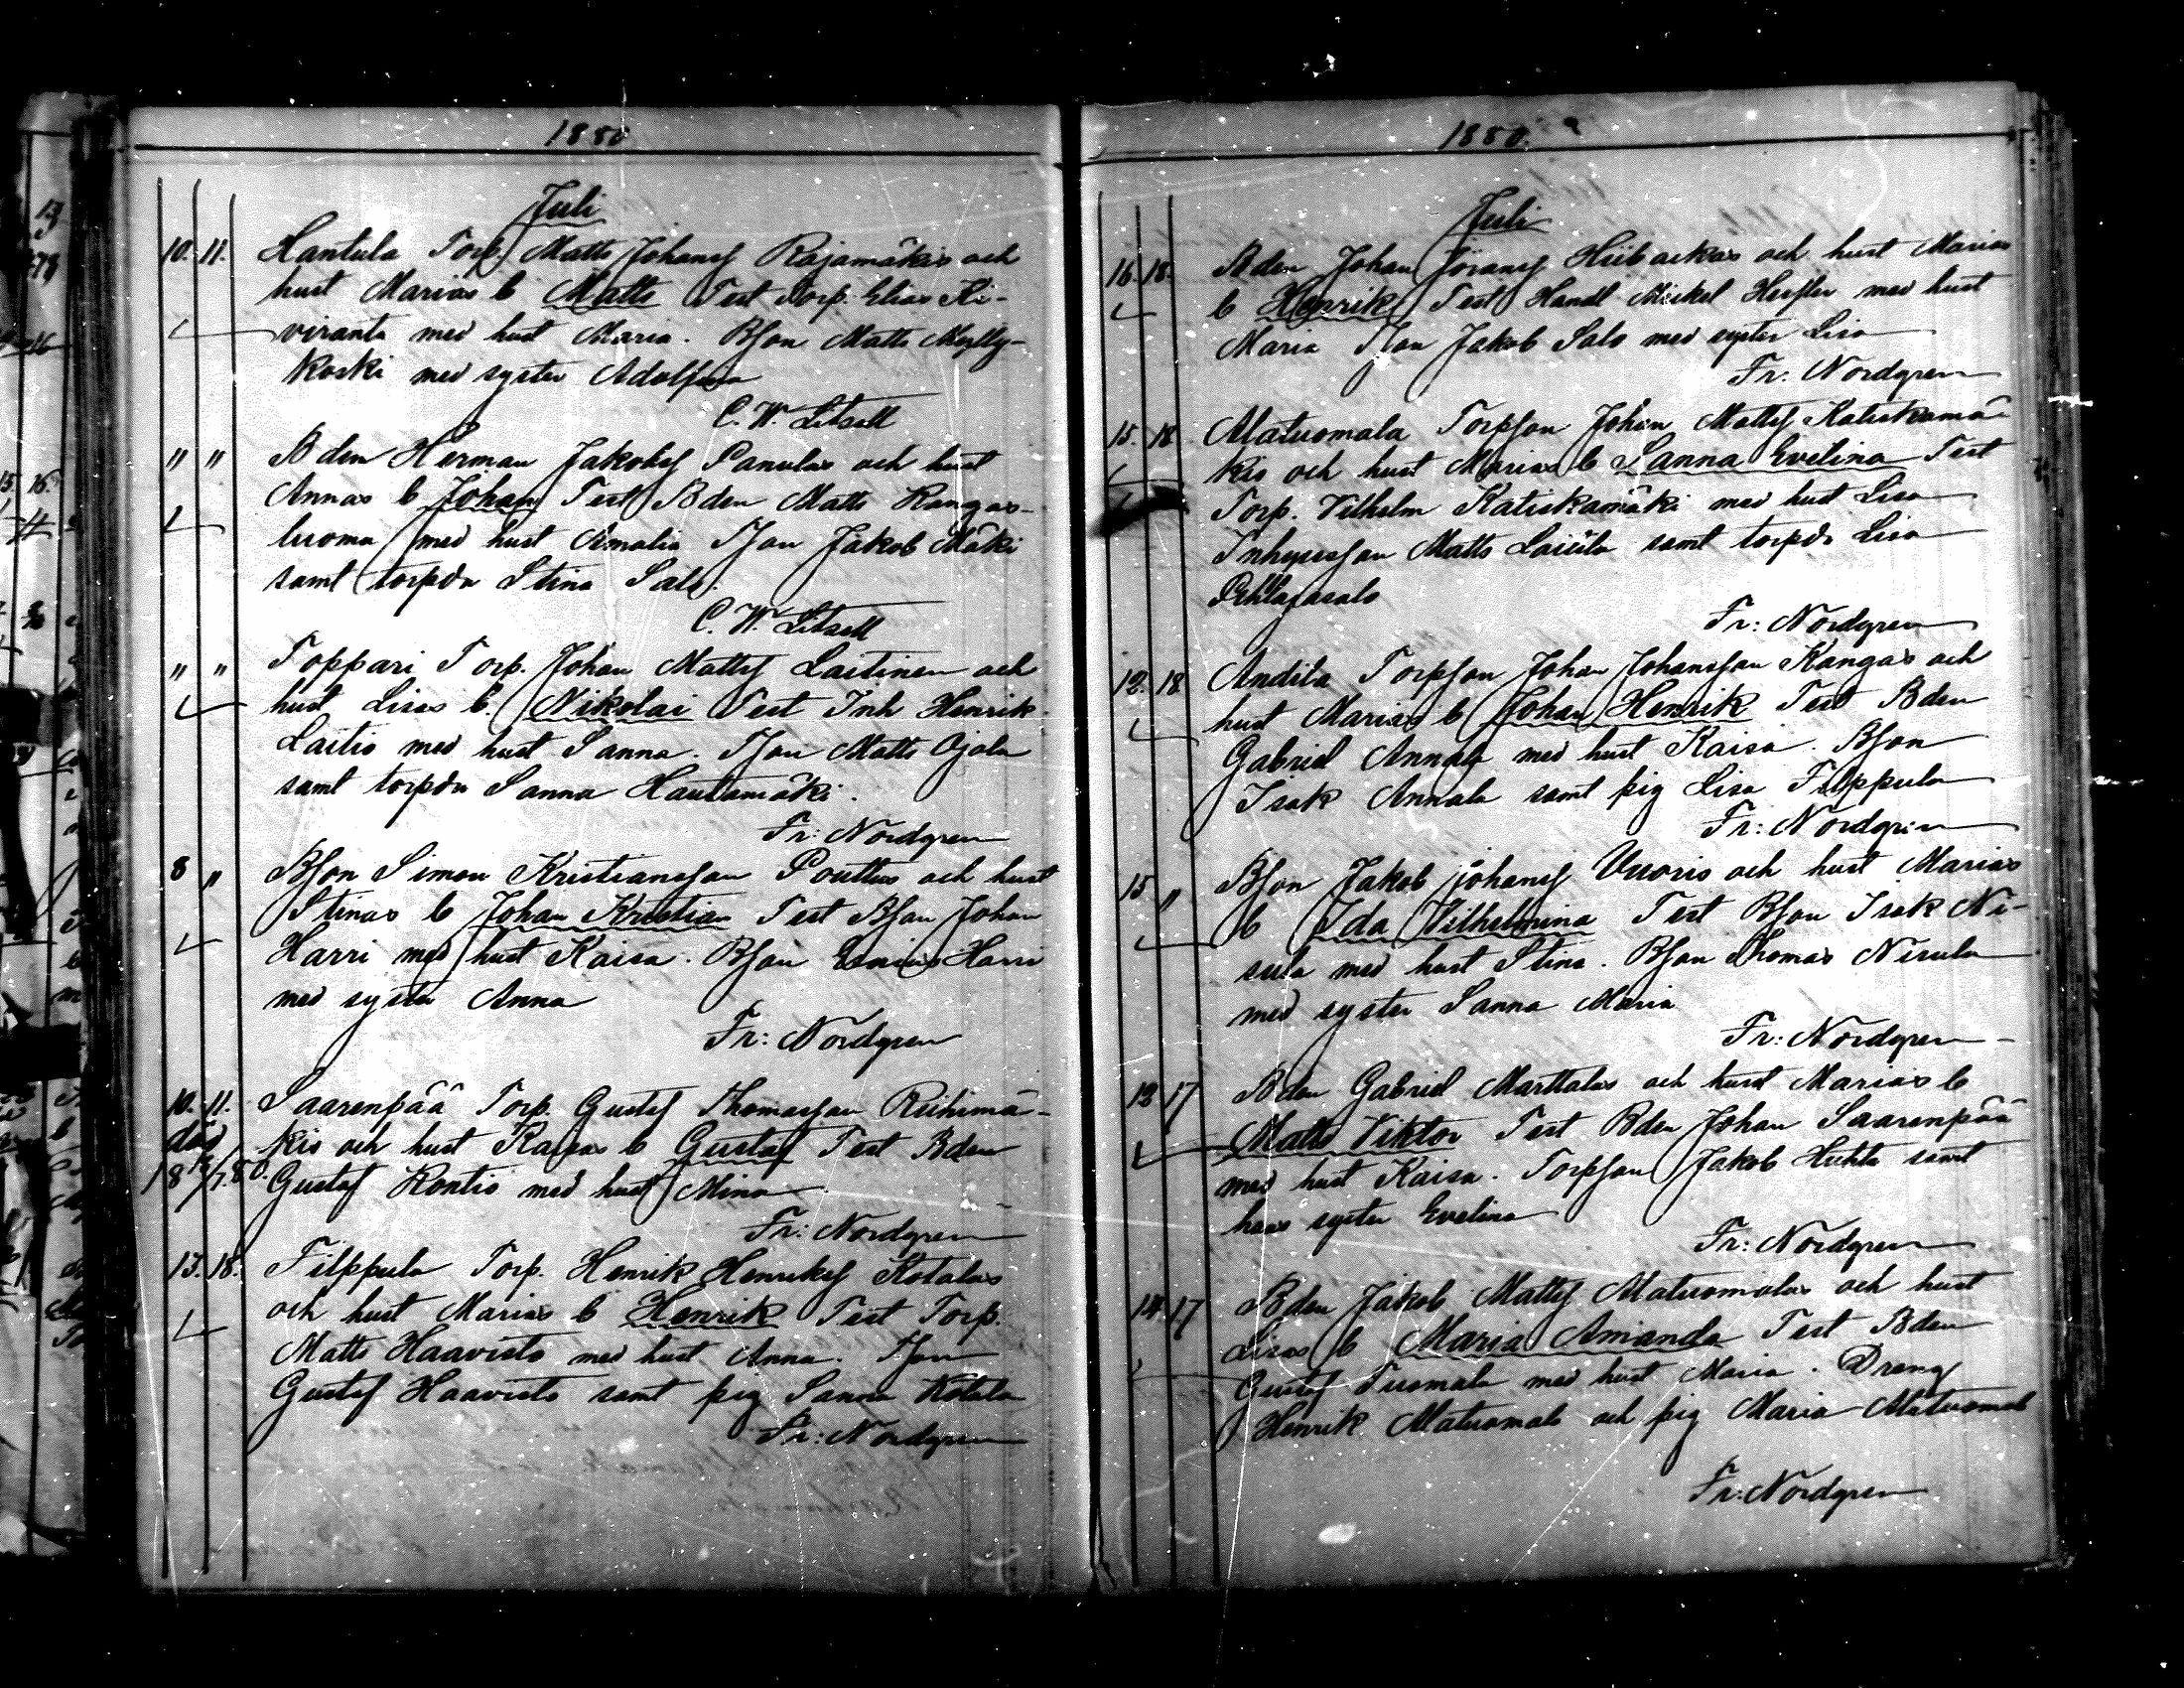 1880
Juli
10. 11. Hantula Torp. Matts Johansf Rajamäkis och
hust Marias b Matts Test Torp. Elias Ki-
viranta med hust Maria. Bson Matts Mylly-
koski med syster Adolfina
C. W. Litsell
" " Bden Herman Jakobsf Panulas och hust
Annas b Johan Test Bden Matts Kangas-
luoma med hust Amalia Tson Jakob Mäki
samt torpdr Stina Salo.
C. W. Litsell
" " Toppari Torp. Johan Mattsf Laitinen och
hust Lisas b. Nikolai Test Inh Henrik
Laitio med hust Sanna. Tson Matts Ojala
samt torpdr Sanna Hautamäki.
Fr: Nordgren
8 " Bson Simon Kristiansson Pouttus och hust
Stinas b Johan Kristian Test Bson Johan
Harri med hust Kaisa. Bson Harri
med syster Anna
Fr: Nordgren
10. 11. Saarenpää Torp. Gustaf Thomasson Riihimä-
död kis och hust Kajsas b Gustaf Test Bden
Gustaf Kontio med hust Mina
Fr: Nordgren
13. 18. Filppula Torp. Henrik Henriksf Kotalas
och hust Marias b Henrik Test Torp.
Matts Haavisto med hust Anna. Tson
Gustaf Haavisto samt pig Sanna Kotala
Fr: Nordgren
1880.
Juli
16. 18. Bden Johan Jöransf Hiibackas och hust Marias
b Henrik Test Handl Mickel med hust
Maria Tson Jakob Salo med syster Lisa
Fr: Nordgren
15. 18 Alatuomala Torpson Johan Mattsf Katiskamä-
kis och hust Marias b Sanna Evelina Test
Torp. Vilhelm Katiskamäki med hust Lisa
Inhysesson Matts Laiitila samt torpdr Lisa
Pehlajasalo
Fr: Nordgren
12. 18 Andila Torpson Johan Johansson Kangas och
hust Marias b Johan Henrik Test Bden
Gabriel Annala med hust Kaisa. Bson
Isak Annala samt pig Lisa Filppula
Fr: Nordgren
15 " Bson Jakob Johansf Vuoris och hust Marias
b Ida Vilhelmina Test Bson Isak Ni-
sula med hust Stina. Bson Thomas Nisula
med syster Sanna Maria
Fr: Nordgren
13 17 Bden Gabriel Marttalas och hust Marias b
Matts Viktor Test Bden Johan Saarenpää
med hust Kaisa. Torpson Jakob Huhta samt
hans syster Evelina
Fr: Nordgren
14. 17 Bden Jakob Mattsf Alatuomalas och hust
Lisas b Maria Amanda Test Bden
Gustaf Tuomala med hust Maria. Dreng
Henrik Alatuomala och pig Maria Alatuomala
Fr: Nordgren